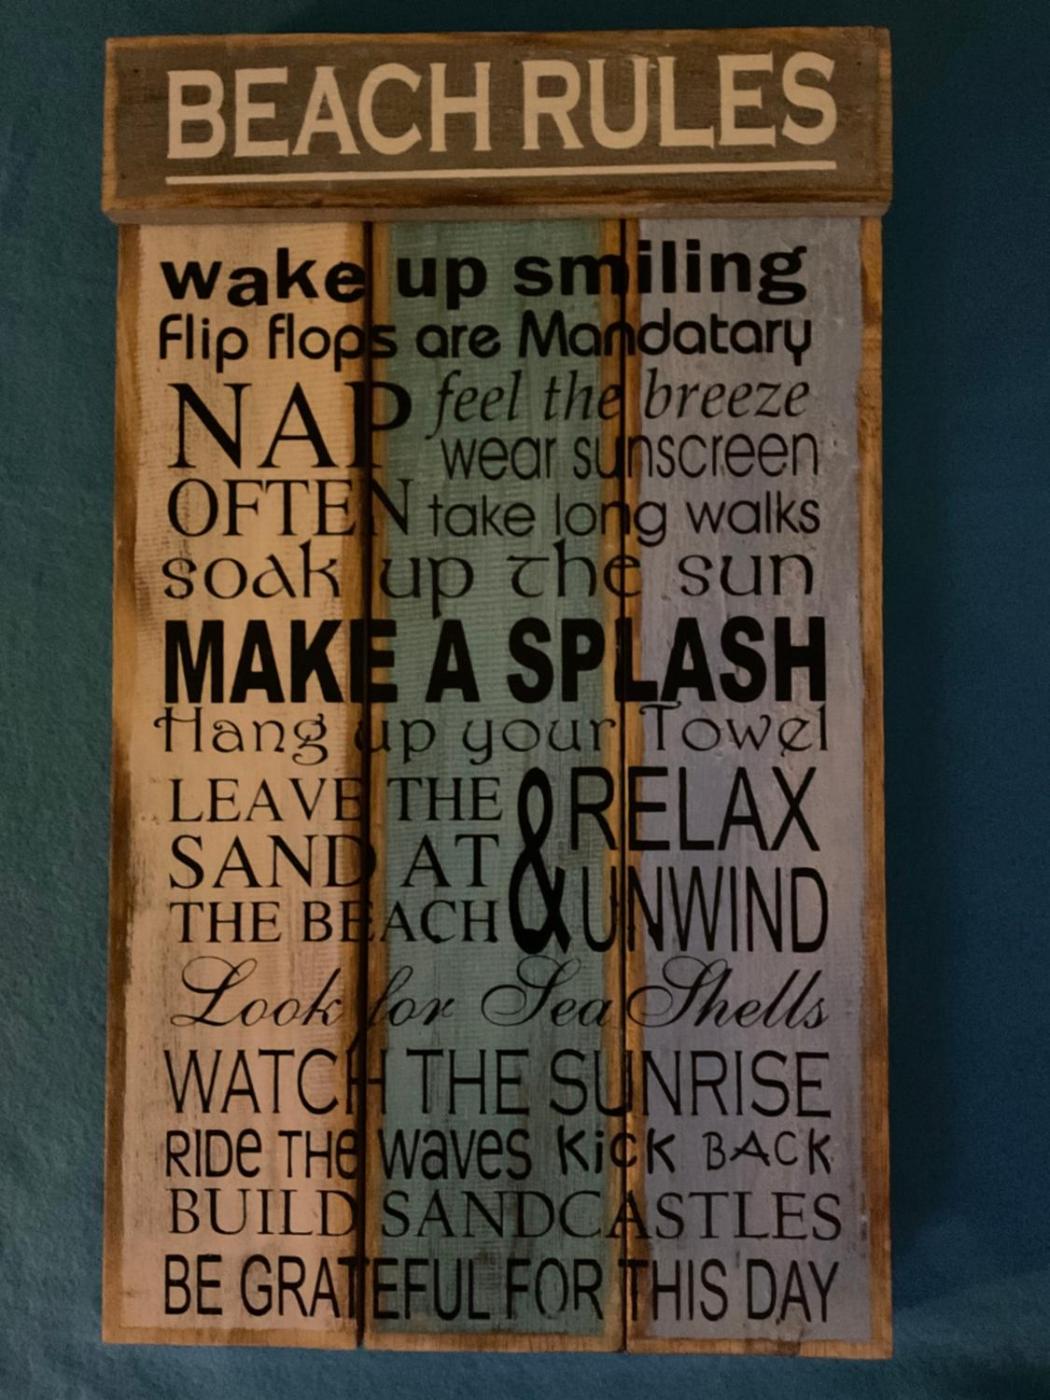 BEACH RULES
wake up smiling
flip flops are Mandatary
NAP
OFTEN
feel the breeze
wear sunscreen
take long walks
soak up the sun
MAKE A SPLASH
Hang up your Towel
LEAVE THE
SAND AT
THE BEACH
&
RELAX
UNWIND
Look for Sea Shells
WATCH THE SUNRISE
RIDe THe waves Kick BACK
BUILD SANDCASTLES
BE GRATEFUL FOR THIS DAY